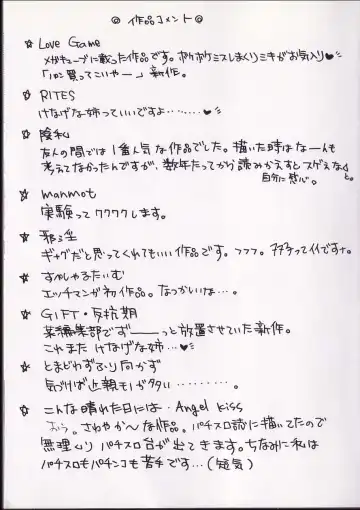 ◎ 作品コメント ◎
☆ Love Game
メガキューブに載った作品です。ボケボケミスしまくりミキがお気入り♥
「パン買ってこいやー」新作。
☆ RITES
けなげな姉っていいですよ……♥
☆ 陰私
友人の間では1番人気な作品でした。描いた時はなーんも
考えてなかったんですが、数年たってから読みかえすとスゲェな と。
自分に感心。
☆ manmot
実験ってワクワクします。
☆ 邪淫
ギャグだと思ってくれてもいい作品です。フフフ。 ってイイですナ。
☆ すぺしゃるたいむ
エッチマンガ初作品。なつかしいな…。
☆ GIFT・反抗期
某編集部でず――っと放置させていた新作。
これまた けなげな姉…♥
☆ とまどわずふり向かず
気づけば近親ものが多い………。
☆ こんな晴れた日には・Angel kiss
おぅ。さわやか〜な作品。パチスロ誌に描いてたので
無理くりパチスロ台が出てきます。ちなみに私は
パチスロもパチンコも苦手です…(短気)